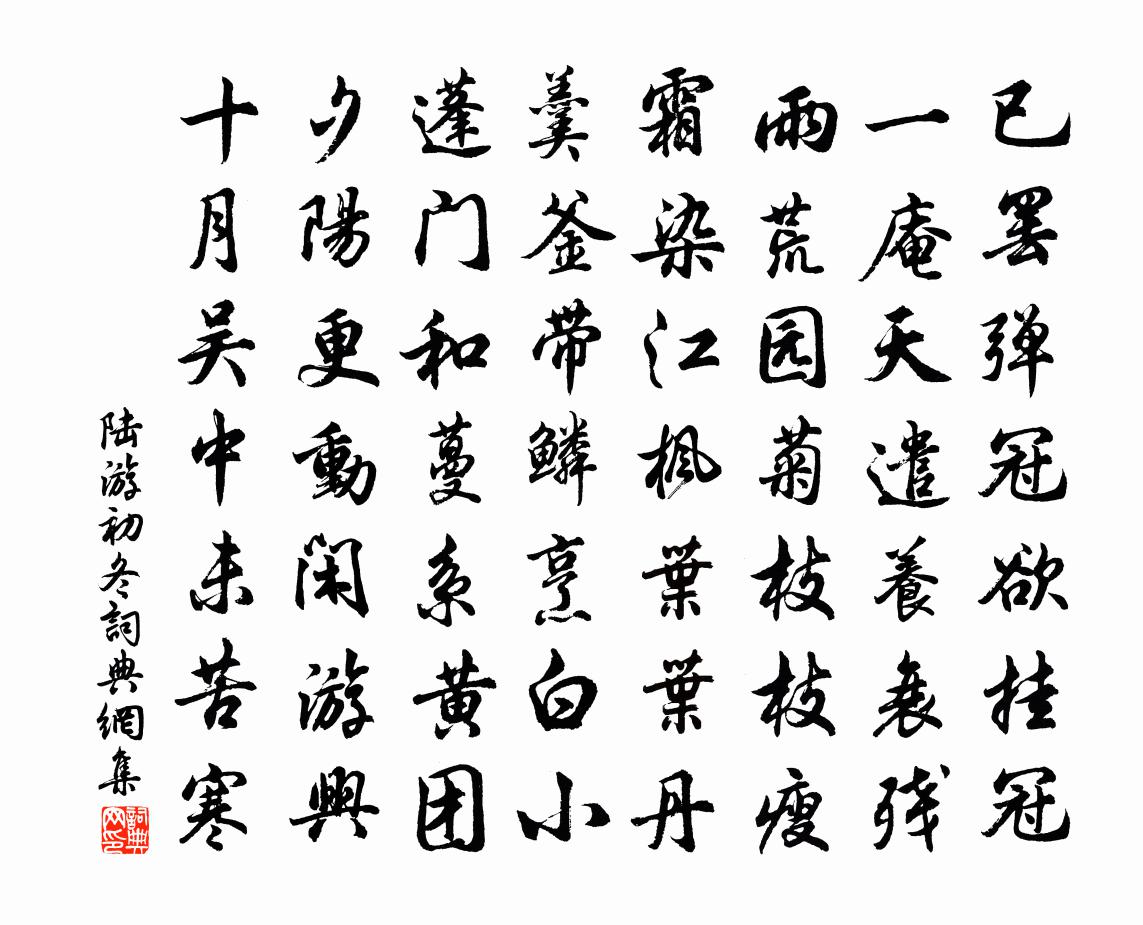 已罢弹冠欲挂冠
一庵天遣養衰残
雨荒园菊枝枝瘦
霜染江楓葉葉丹
羹釜带鳞烹白小
蓬门和蔓系黄团
夕陽更動闲游興
十月吴中未苦寒
陆游初冬詞典網集
詞典网印